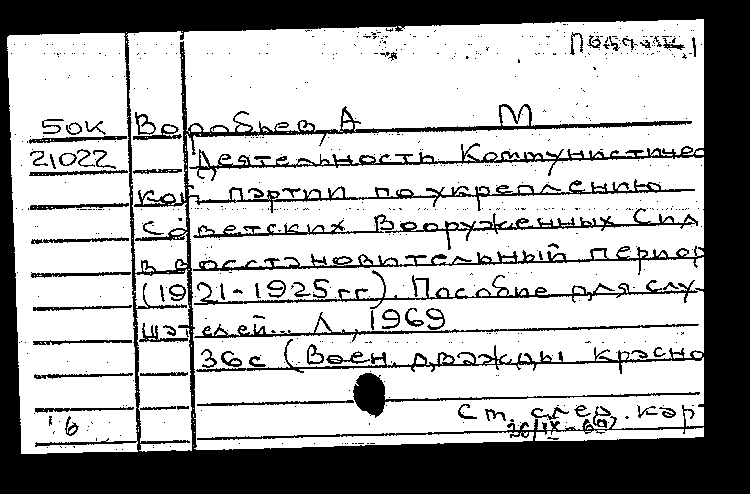 50К Воробьев, А М
21022 Деятельность Коммунистичес
кой партии по укреплению
Советских Вооруженных Сил
в восстановительный период
(1921-1925 гг). Пособие для слу-
шателей... Л., 1969
36с (Воен. дважды красно
Ст. след. карт
'6 26/IX-69